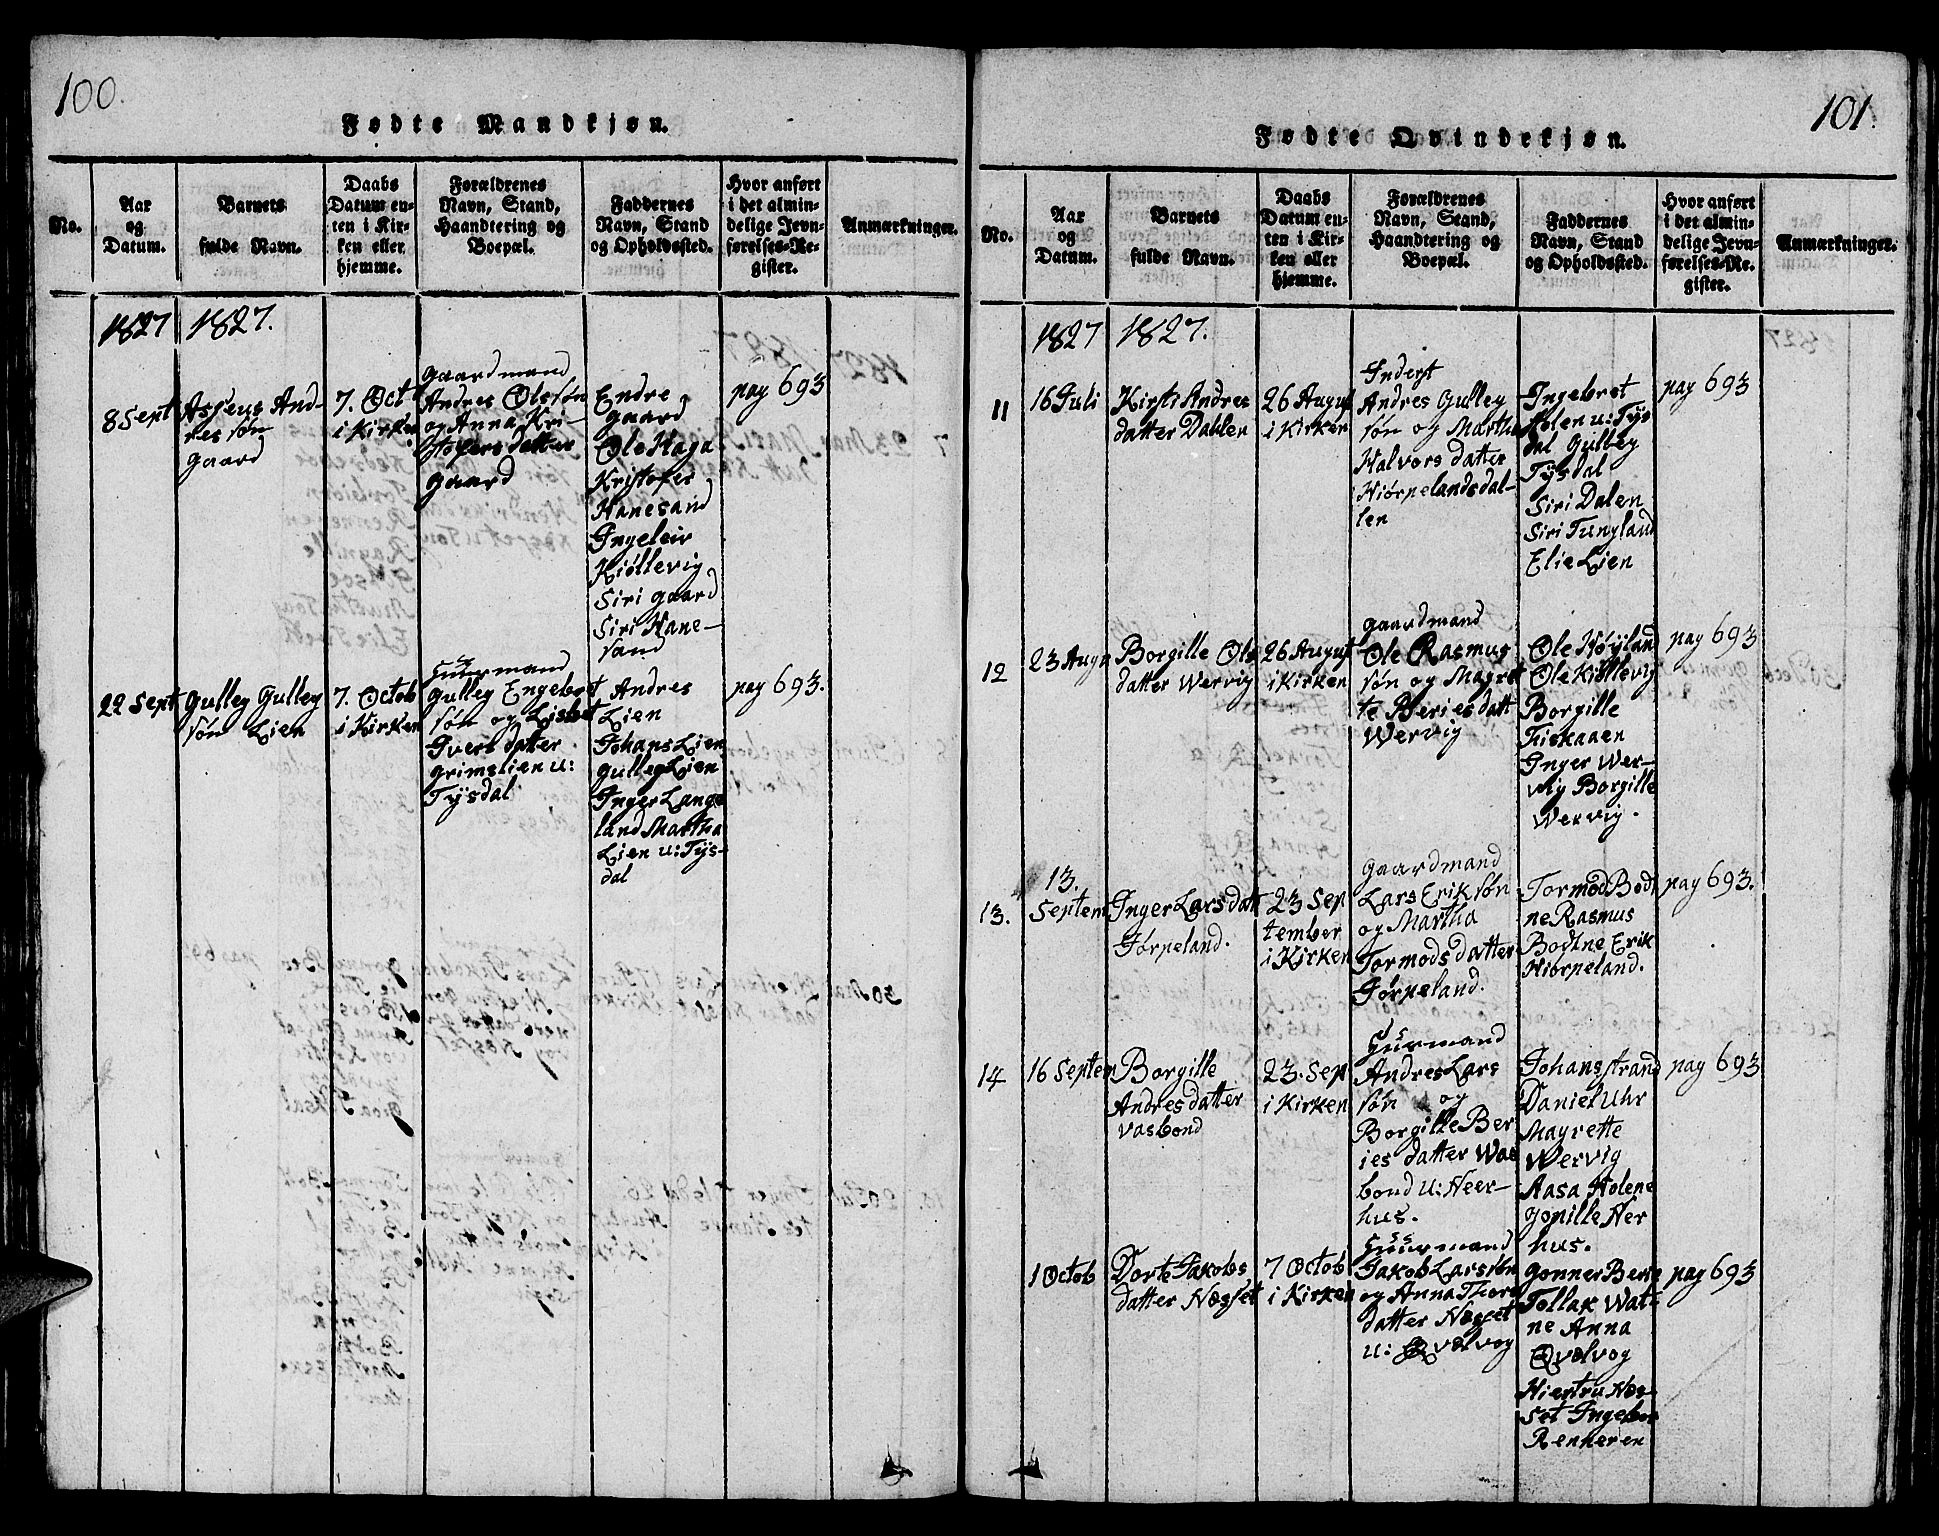 100.
Fødte Mandkjøn.
No.
Aar
og
Datum.
Barnets
fulde Navn.
Daabs
Datum en-
ten i Kir-
ken eller
hjemme.
Forældrenes
Navn, Stand,
Haandtering og
Boepæl.
Faddernes
Navn, Stand
og Opholdssted.
Hvor anført
i det almin-
delige Jevn-
førelses-Re-
gister.
Anmærkninger.
1827
1827.
8 Sept
And-
res søn
Gaard
7. Oct
i Kirken
Gaardmand
Andres Olssøn
og Anna Kri-
stofersdatter
Gaard
Endre
Gaard
Ole Haga
Kristofer
Hanesand
Ingeleiv
Kiøllevig
Siri Gaard
Siri Hane-
sand
pag 693
22 Sept
Gulley Gulley
søn Lien
7. Octob
i Kirken
Huusmand
Gulley Engebret
søn og Lisbet
Iversdatter
Grimslien u:
Tysdal
Andres
Lien
Johans Lien
Gulleg Lien
Inger Lange
land Martha
Lien u: Tys-
dal
pag 693.
101.
Fødte Qvindekjøn.
No.
Aar
og
Datum.
Barnets
fulde Navn.
Daabs
Datum en-
ten i Kir-
ken eller
hjemme.
Forældrenes
Navn, Stand,
Haandtering og
Boepæl.
Faddernes
Navn, Stand
og Opholdssted.
Hvor anført
i det almin-
delige Jevn-
førelses-Re-
gister.
Anmærkninger.
1827
1827.
11
16 Juli
Kirsti Andres
datter Dahlen
26 August
i Kirken
Inderst
Andres Gulley
søn og Martha
Halvors datter
Hiørpelandsdal-
len
Ingebret
Holen u: Tys
dal Gulley
Tysdal
Siri Dalen
Siri Tungland
Elie Lien
pag 693
12
23 Augu
Borgille Ols
datter Wervig
26 August
i Kirken
Gaardmand
Ole Rasmus
søn og Magret
te Beriesdatt
Wervig
Ole Høyland
Ole Kiøllevig
Borgille
Fiskaaen
Inger Wer-
vig Borgille
Wervig.
pag 693
13.
13.
Septem
Inger Larsdatt
Jørpeland.
23 Sep
tember
i Kirken
Gaardmand
Lars Erik søn
og Martha
Tormods datter
Jørpeland.
Tormod Bodt
ne Rasmus
Bodtne Erik
Hiørpeland.
pag 693.
14
16 Septem
Borgille
Andres datter
vasbond
23. Sep
i Kirken
Huusmand
Andres Lars
søn og
Borgille Ber
ies datter Was
bond u: Neer-
hus.
Johans strand
Daniel Uhr
Magrette
Wervig
Aasa Holene
Gonille Ner
hus.
pag 693
1 Octob
Dorte Jakobs
datter Næsset
7 Octob
i Kirken
Huusmand
Jakob Larssøn
og Anna Thors
datter Nesset
u: Qvalvog
Gonner Berie
Tollak Wat-
ne Anna
Qvalvog
Hiertru Næs-
set Ingebor
Renneren
pag 693